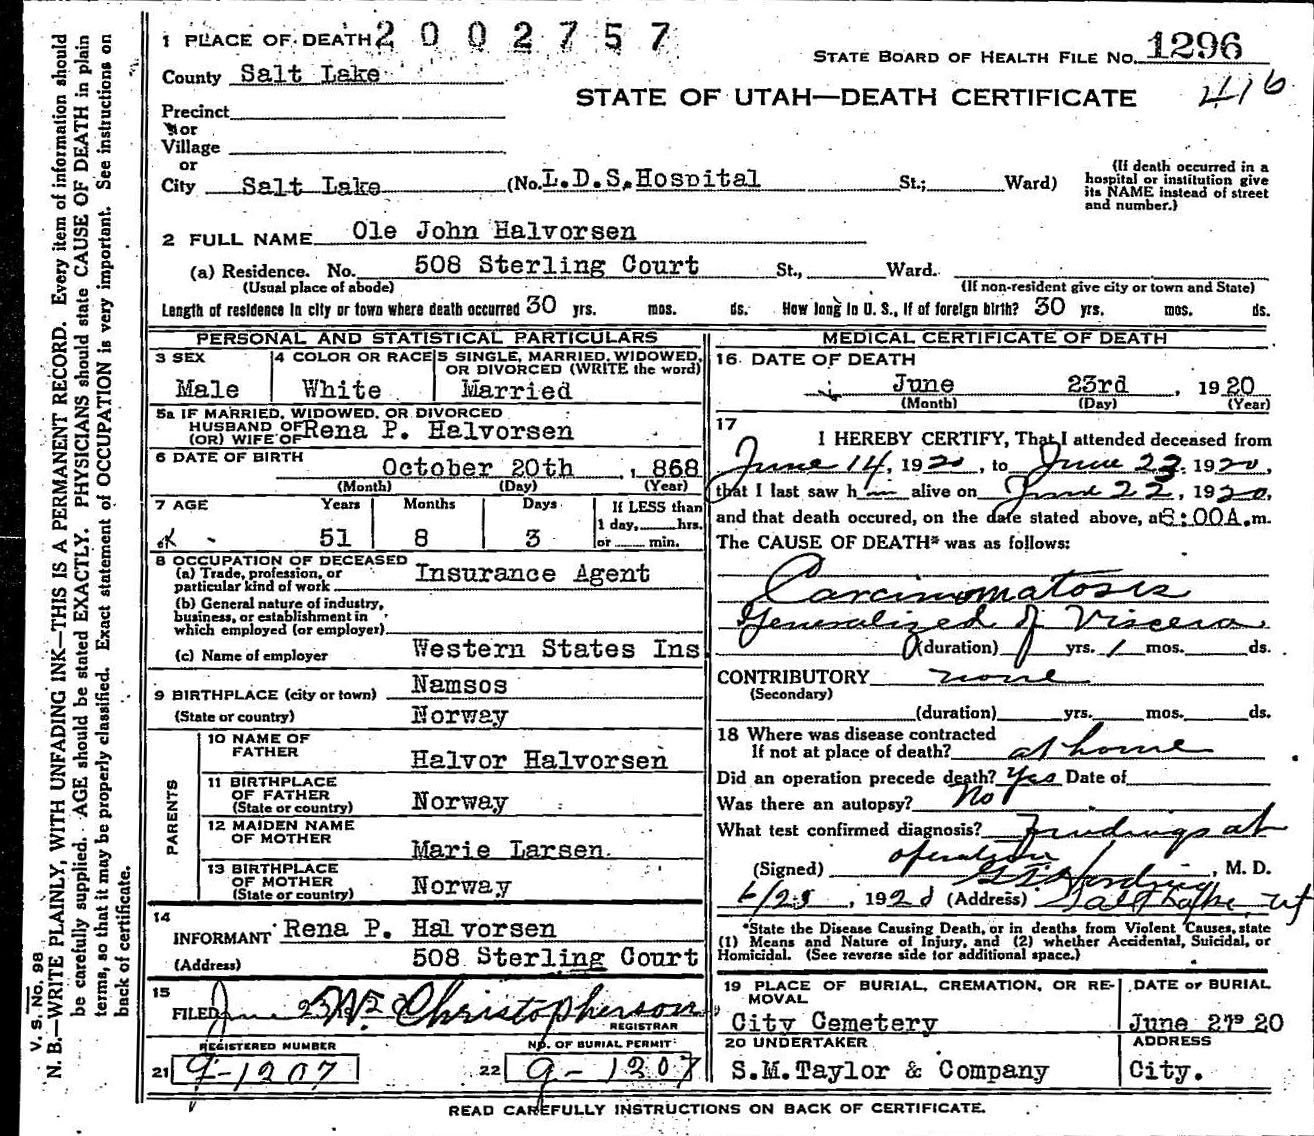 1 PLACE OF DEATH 2002757
STATE BOARD OF HEALTH FILE NO. 1296
County Salt Lake
416
STATE OF UTAH—DEATH CERTIFICATE
Precinct
or
Village
or
City Salt Lake (No. L.D.S. Hospital St.; Ward)
(If death occurred in a hospital or institution give its NAME instead of street and number.)
2 FULL NAME Ole John Halvorsen
(a) Residence. No. 508 Sterling Court St., Ward.
(Usual place of abode) (If non-resident give city or town and State)
Length of residence in city or town where death occurred 30 yrs. mos. ds. How long in U. S., if of foreign birth? 30 yrs. mos. ds.
PERSONAL AND STATISTICAL PARTICULARS
3 SEX
Male
4 COLOR OR RACE
White
5 SINGLE, MARRIED, WIDOWED, OR DIVORCED (WRITE the word)
Married
5a IF MARRIED, WIDOWED, OR DIVORCED
HUSBAND OF
(OR) WIFE OF Rena P. Halvorsen
6 DATE OF BIRTH
October 20th , 1868
(Month) (Day) (Year)
7 AGE Years Months Days If LESS than
1 day, hrs.
51 8 3 or min.
8 OCCUPATION OF DECEASED
(a) Trade, profession, or
particular kind of work Insurance Agent
(b) General nature of industry,
business, or establishment in
which employed (or employer)
(c) Name of employer Western States Ins
9 BIRTHPLACE (city or town) Namsos
(State or country) Norway
PARENTS
10 NAME OF
FATHER Halvor Halvorsen
11 BIRTHPLACE
OF FATHER
(State or country) Norway
12 MAIDEN NAME
OF MOTHER Marie Larsen.
13 BIRTHPLACE
OF MOTHER
(State or country) Norway
14
INFORMANT Rena P. Halvorsen
(Address) 508 Sterling Court
15
FILED June 23 Christopherson
REGISTRAR
REGISTERED NUMBER
21 9-1207
NO. OF BURIAL PERMIT
22 9-1207
MEDICAL CERTIFICATE OF DEATH
16 DATE OF DEATH
June 23rd , 1920
(Month) (Day) (Year)
17
I HEREBY CERTIFY, That I attended deceased from
June 14, 1920, to June 23, 1920,
that I last saw him alive on June 22, 1920,
and that death occured, on the date stated above, at 8:00A.m.
The CAUSE OF DEATH* was as follows:
Carcinomatosis
Generalized of Viscera
(duration) yrs. 1 mos. ds.
CONTRIBUTORY none
(Secondary)
(duration) yrs. mos. ds.
18 Where was disease contracted
If not at place of death? at home
Did an operation precede death? Yes Date of
Was there an autopsy? No
What test confirmed diagnosis? Findings at
operation
(Signed) Harding, M. D.
6/23, 1920 (Address) Salt Lake, Ut
*State the Disease Causing Death, or in deaths from Violent Causes, state
(1) Means and Nature of Injury, and (2) whether Accidental, Suicidal, or
Homicidal. (See reverse side for additional space.)
19 PLACE OF BURIAL, CREMATION, OR RE-
MOVAL
City Cemetery
DATE OF BURIAL
June 27 19 20
20 UNDERTAKER
S.M.Taylor & Company
ADDRESS
City.
READ CAREFULLY INSTRUCTIONS ON BACK OF CERTIFICATE.
V. S. No. 98
N. B.—WRITE PLAINLY, WITH UNFADING INK—THIS IS A PERMANENT RECORD. Every item of information should
be carefully supplied. AGE should be stated EXACTLY. PHYSICIANS should state CAUSE OF DEATH in plain
terms, so that it may be properly classified. Exact statement of OCCUPATION is very important. See instructions on
back of certificate.